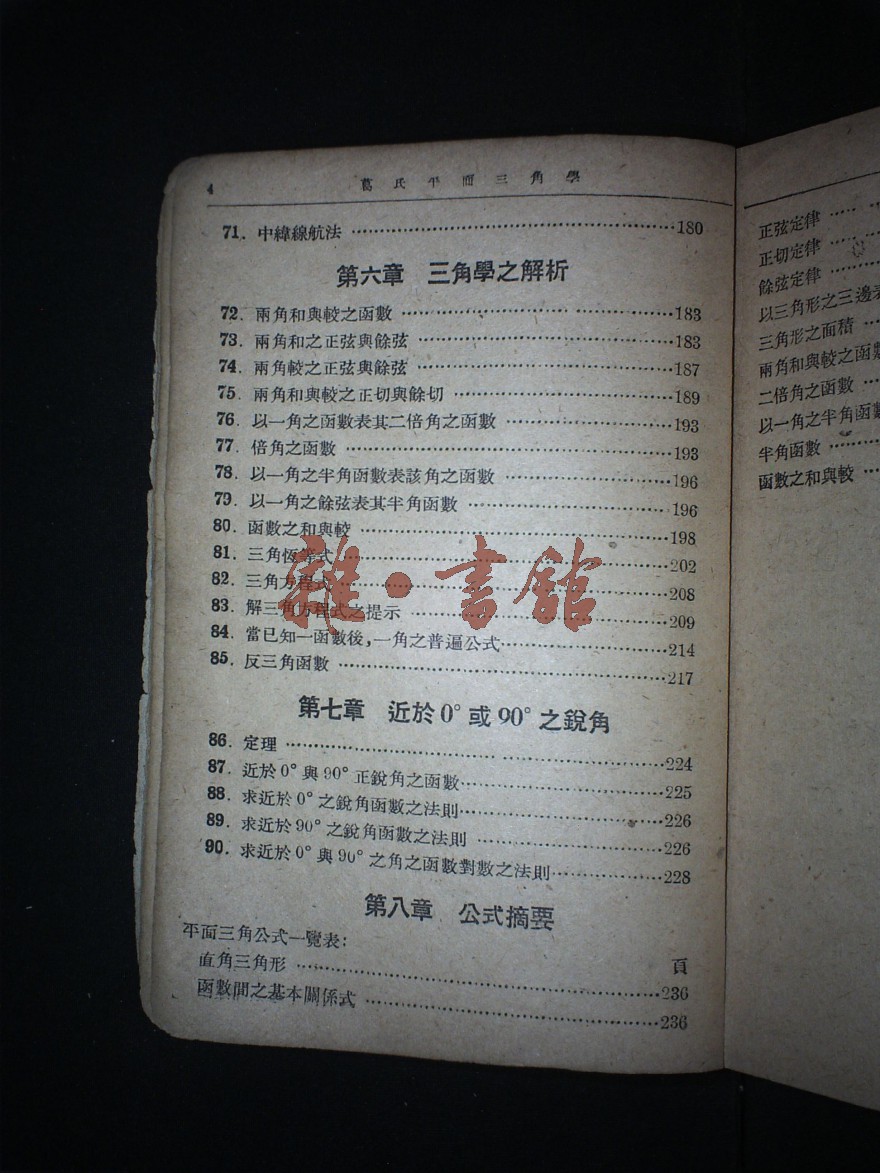 4 葛氏平面三角學
71. 中緯線航法 180
第六章 三角學之解析
72. 兩角和與較之函數 183
73. 兩角和之正弦與餘弦 183
74. 兩角較之正弦與餘弦 187
75. 兩角和與較之正切與餘切 189
76. 以一角之函數表其二倍角之函數 193
77. 倍角之函數 193
78. 以一角之半角函數表該角之函數 196
79. 以一角之餘弦表其半角函數 196
80. 函數之和與較 198
81. 三角恆等式 202
82. 三角方程式 208
83. 解三角方程式之提示 209
84. 當已知一函數後,一角之普遍公式 214
85. 反三角函數 217
雜·書館
第七章 近於0°或90°之銳角
86. 定理 224
87. 近於0°與90°正銳角之函數 225
88. 求近於0°之銳角函數之法則 226
89. 求近於90°之銳角函數之法則 226
90. 求近於0°與90°之角之函數對數之法則 228
第八章 公式摘要
平面三角公式一覽表:
頁
直角三角形 236
函數間之基本關係式 236
正弦定律
正切定律
餘弦定律
以三角形之三邊表
三角形之面積
兩角和與較之函數
二倍角之函數
以一角之半角函數
半角函數
函數之和與較